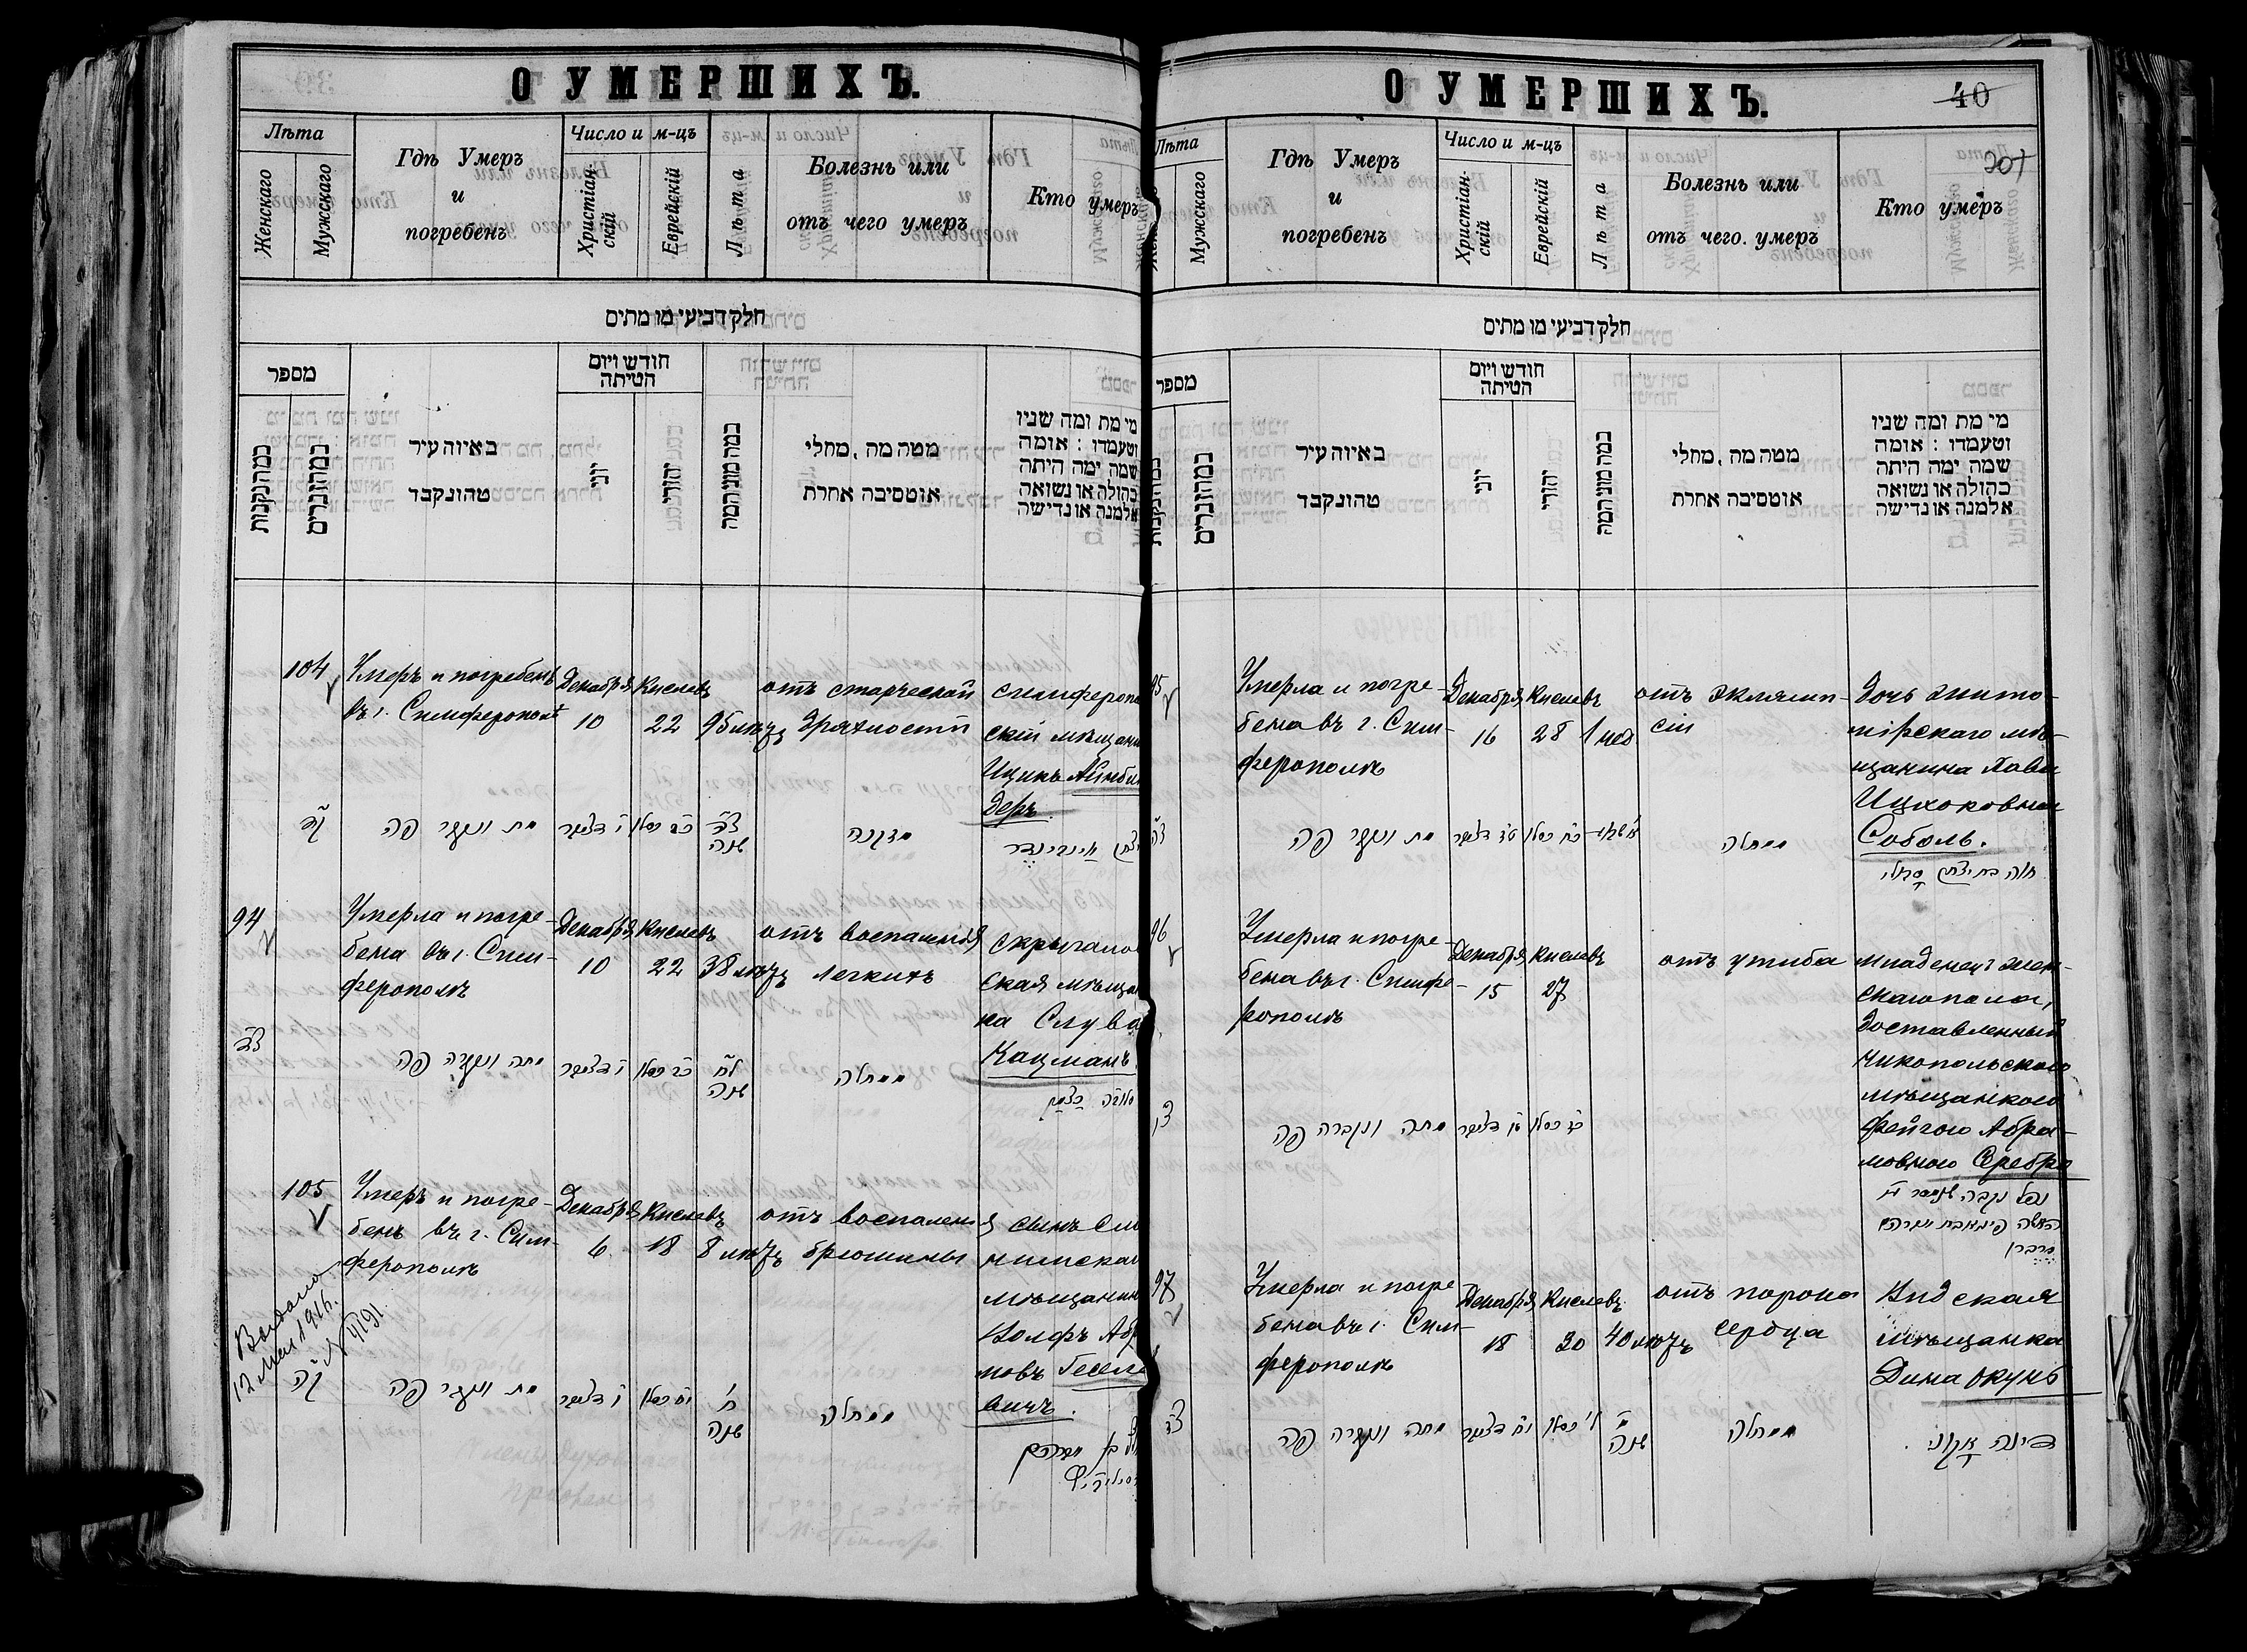 О УМЕРШИХЪ.
Лѣта
Женскаго
Мужскаго
Гдѣ Умеръ
и
погребенъ
Число и м-цъ
Христіан-
скій
Еврейскій
Лѣта
Болезнь или
отъ чего умеръ
Кто умеръ
חלק דביעי מו מתים
מספר
כמה נקבות
כמה זכרים
באיזה עיר
טהונקבד
חודש ויום
הטיתה
יוני
יהודי
כמה מוני חמה
מטה מה, מחלי
אוטסיבה אחרת
מי מת ומה שניו
וטעמדו : אומה
שמה ימה היתה
כהולה או נשואה
אלמנה או נדישה
104
Умеръ и погребенъ
въ г. Симферополѣ
Декабря
10
Кислевъ
22
95 лѣтъ
отъ старческой
дряхлости
симферопо
скій мѣщани
Ицикъ Айнби
деръ.
קד
מת ונקבר פה
י דצמבר
כב כסלו
צה
שנה
מזקנה
איינבינדר
94
Умерла и погре-
бена въ г. Сим-
ферополѣ
Декабря
10
Кислевъ
22
38 лѣтъ
отъ воспаленія
легкихъ
скрыгало
ская мѣща
ка Слува
Кацманъ.
צד
מתה ונקברה פה
י דצמבר
כב כסלו
לח
שנה
ממחלה
כצמן
105
Умеръ и погре-
бенъ въ г. Сим-
ферополѣ
Декабря
6
Кислевъ
18
8 лѣтъ
отъ воспаленія
брюшины
сынъ Сло
нимскаг
мѣщанин
Вольфъ Абр
мовъ Гесел
вичъ.
Выдано
12 Мая 1916.
№ 4191
קה
מת ונקבר פה
ו דצמבר
יח כסלו
ח
שנה
ממחלה
בן אברהם
О УМЕРШИХЪ.
40
207
Лѣта
Мужскаго
Гдѣ Умеръ
и
погребенъ
Число и м-цъ
Христіан-
скій
Еврейскій
Лѣта
Болезнь или
отъ чего. умеръ
Кто умеръ
חלק דביעי מו מתים
מספר
כמה זכרים
באיזה עיר
טהונקבד
חודש ויום
הטיתה
יוני
יהודי
כמה מוני חמה
מטה מה, מחלי
אוטסיבה אחרת
מי מת ומה שניו
וטעמדו : אומה
שמה ימה היתה
כהולה או נשואה
אלמנה או נדישה
95
Умерла и погре-
бена въ г. Сим-
ферополѣ
Декабря
16
Кислевъ
28
1 нед
отъ эклямп-
сіи
Дочь жито-
мірскаго мѣ-
щанина Хава
Ицхоковна
Соболь.
צה
מת ונקבר פה
טז דצמבר
כח כסלו
ממחלה
חוה בת יצחק סבולי
96
Умерла и погре-
бена въ г. Симфе-
рополѣ
Декабря
15
Кислевъ
27
отъ ушиба
младенецъ жен-
скаго пола,
доставленный
Никопольскою
мѣщанкою
Фейгою Абра-
мовною Серебро
צו
מתה ונקברה פה
טו דצמבר
כז כסלו
97
Умерла и погре
бена въ г. Сим-
ферополѣ
Декабря
18
Кислевъ
30
40 лѣтъ
отъ порока
сердца
Видская
мѣщанка
Дина Окунь
צז
מתה ונקברה פה
יח דצמבר
ל כסלו
מ
שנה
ממחלה
דינה אקון